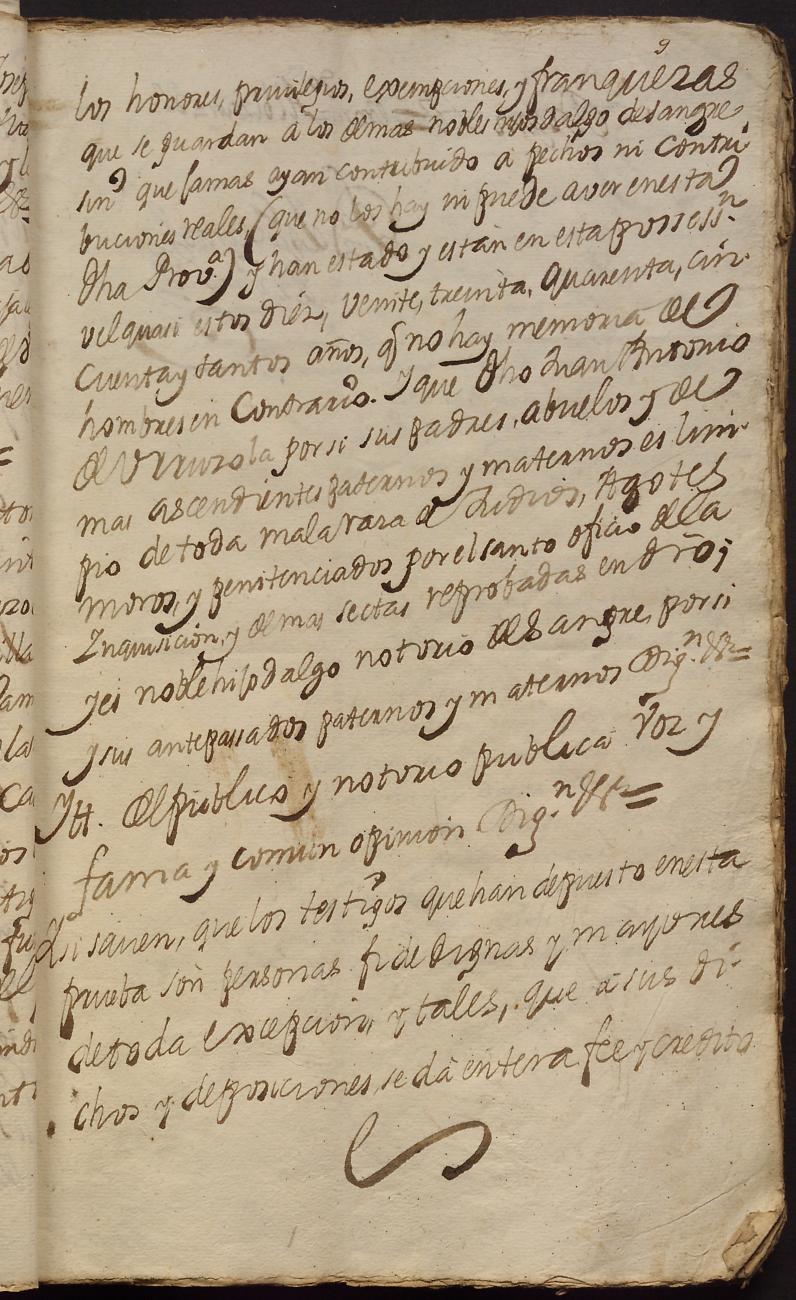 9
los honores, privilegios, exempciones, y franquezas
que se guardan â los demas nobles hijosdalgo de sangre
sin que jamas ayan contribuido a pechos ni contri-
buciones reales, (que no los hay ni puede aver en esta
dha Prov.ª) y han estado y están en esta possess.n
vel quasi estos diez, veinte, treinta, quarenta, cin-
cuenta y tantos años, q no hay memoria de
hombres en contrario. Y que dho Juan Antonio
de Urruzola por si sus padres, abuelos y de
mas ascendientes paternos y maternos es lim-
pio de toda mala raza de Judios, Agotes
moros, y penitenciados por el santo oficio de la
Inquisición, y demas sectas reprobadas en dro;
y es noble hijodalgo notorio de sangre por si
y sus antepassados paternos y maternos Dig.n &ª=
Ytt. de publico y notorio publica voz y
fama y comun opinion Dig.n &ª=
si saven, que los testigos que han depuesto en esta
prueba son personas fidedignas y mayores
de toda excepcion, y tales, que â sus di-
chos y deposiciones, se dá entera fee y credito